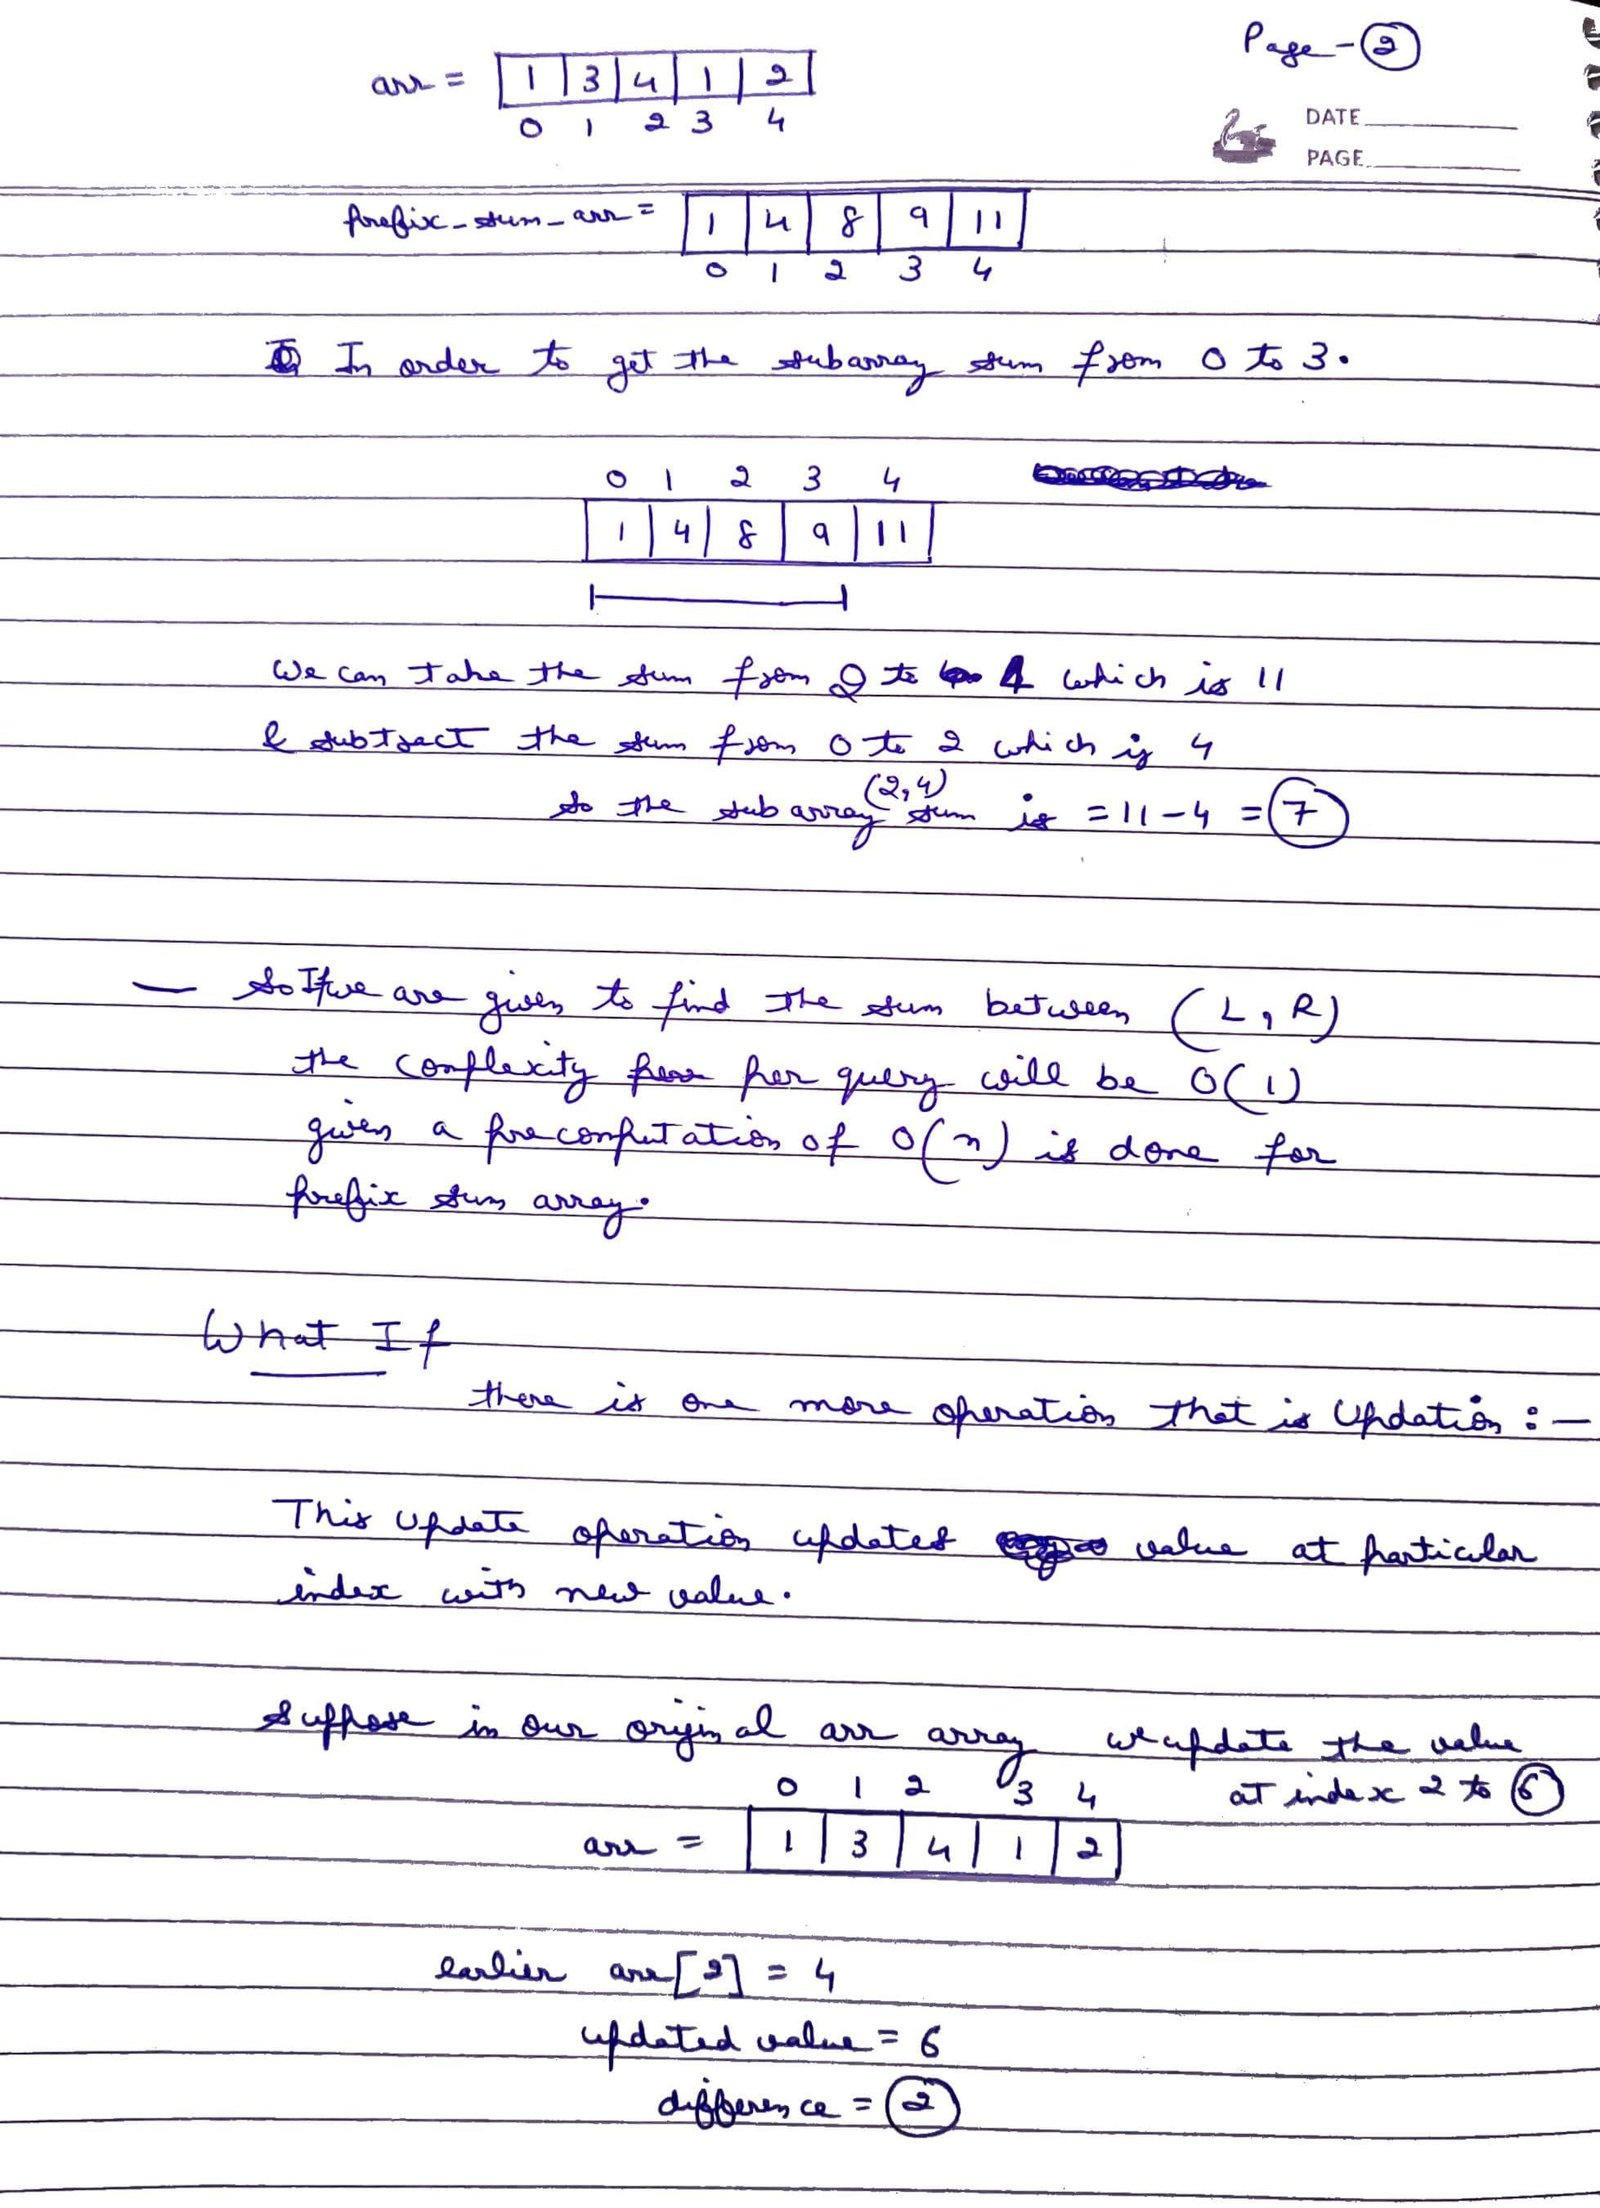 Page - 2
arr = 1 3 4 1 2
0 1 2 3 4
DATE
PAGE
prefix-sum-arr = 1 4 8 9 11
0 1 2 3 4
In order to get the subarray sum from 0 to 3.
0 1 2 3 4
1 4 8 9 11
We can take the sum from 0 to 4 which is 11
& subtract the sum from 0 to 2 which is 4
(2,4)
so the subarray sum is = 11 - 4 = 7
— So If we are given to find the sum between (L, R)
the complexity per query will be O(1)
given a precomputation of O(n) is done for
prefix sum array.
What If
there is one more operation that is Updation :—
This update operation updates value at particular
index with new value.
Suppose in our original arr array we update the value
at index 2 to 6
0 1 2 3 4
arr = 1 3 4 1 2
earlier arr[2] = 4
updated value = 6
difference = 2